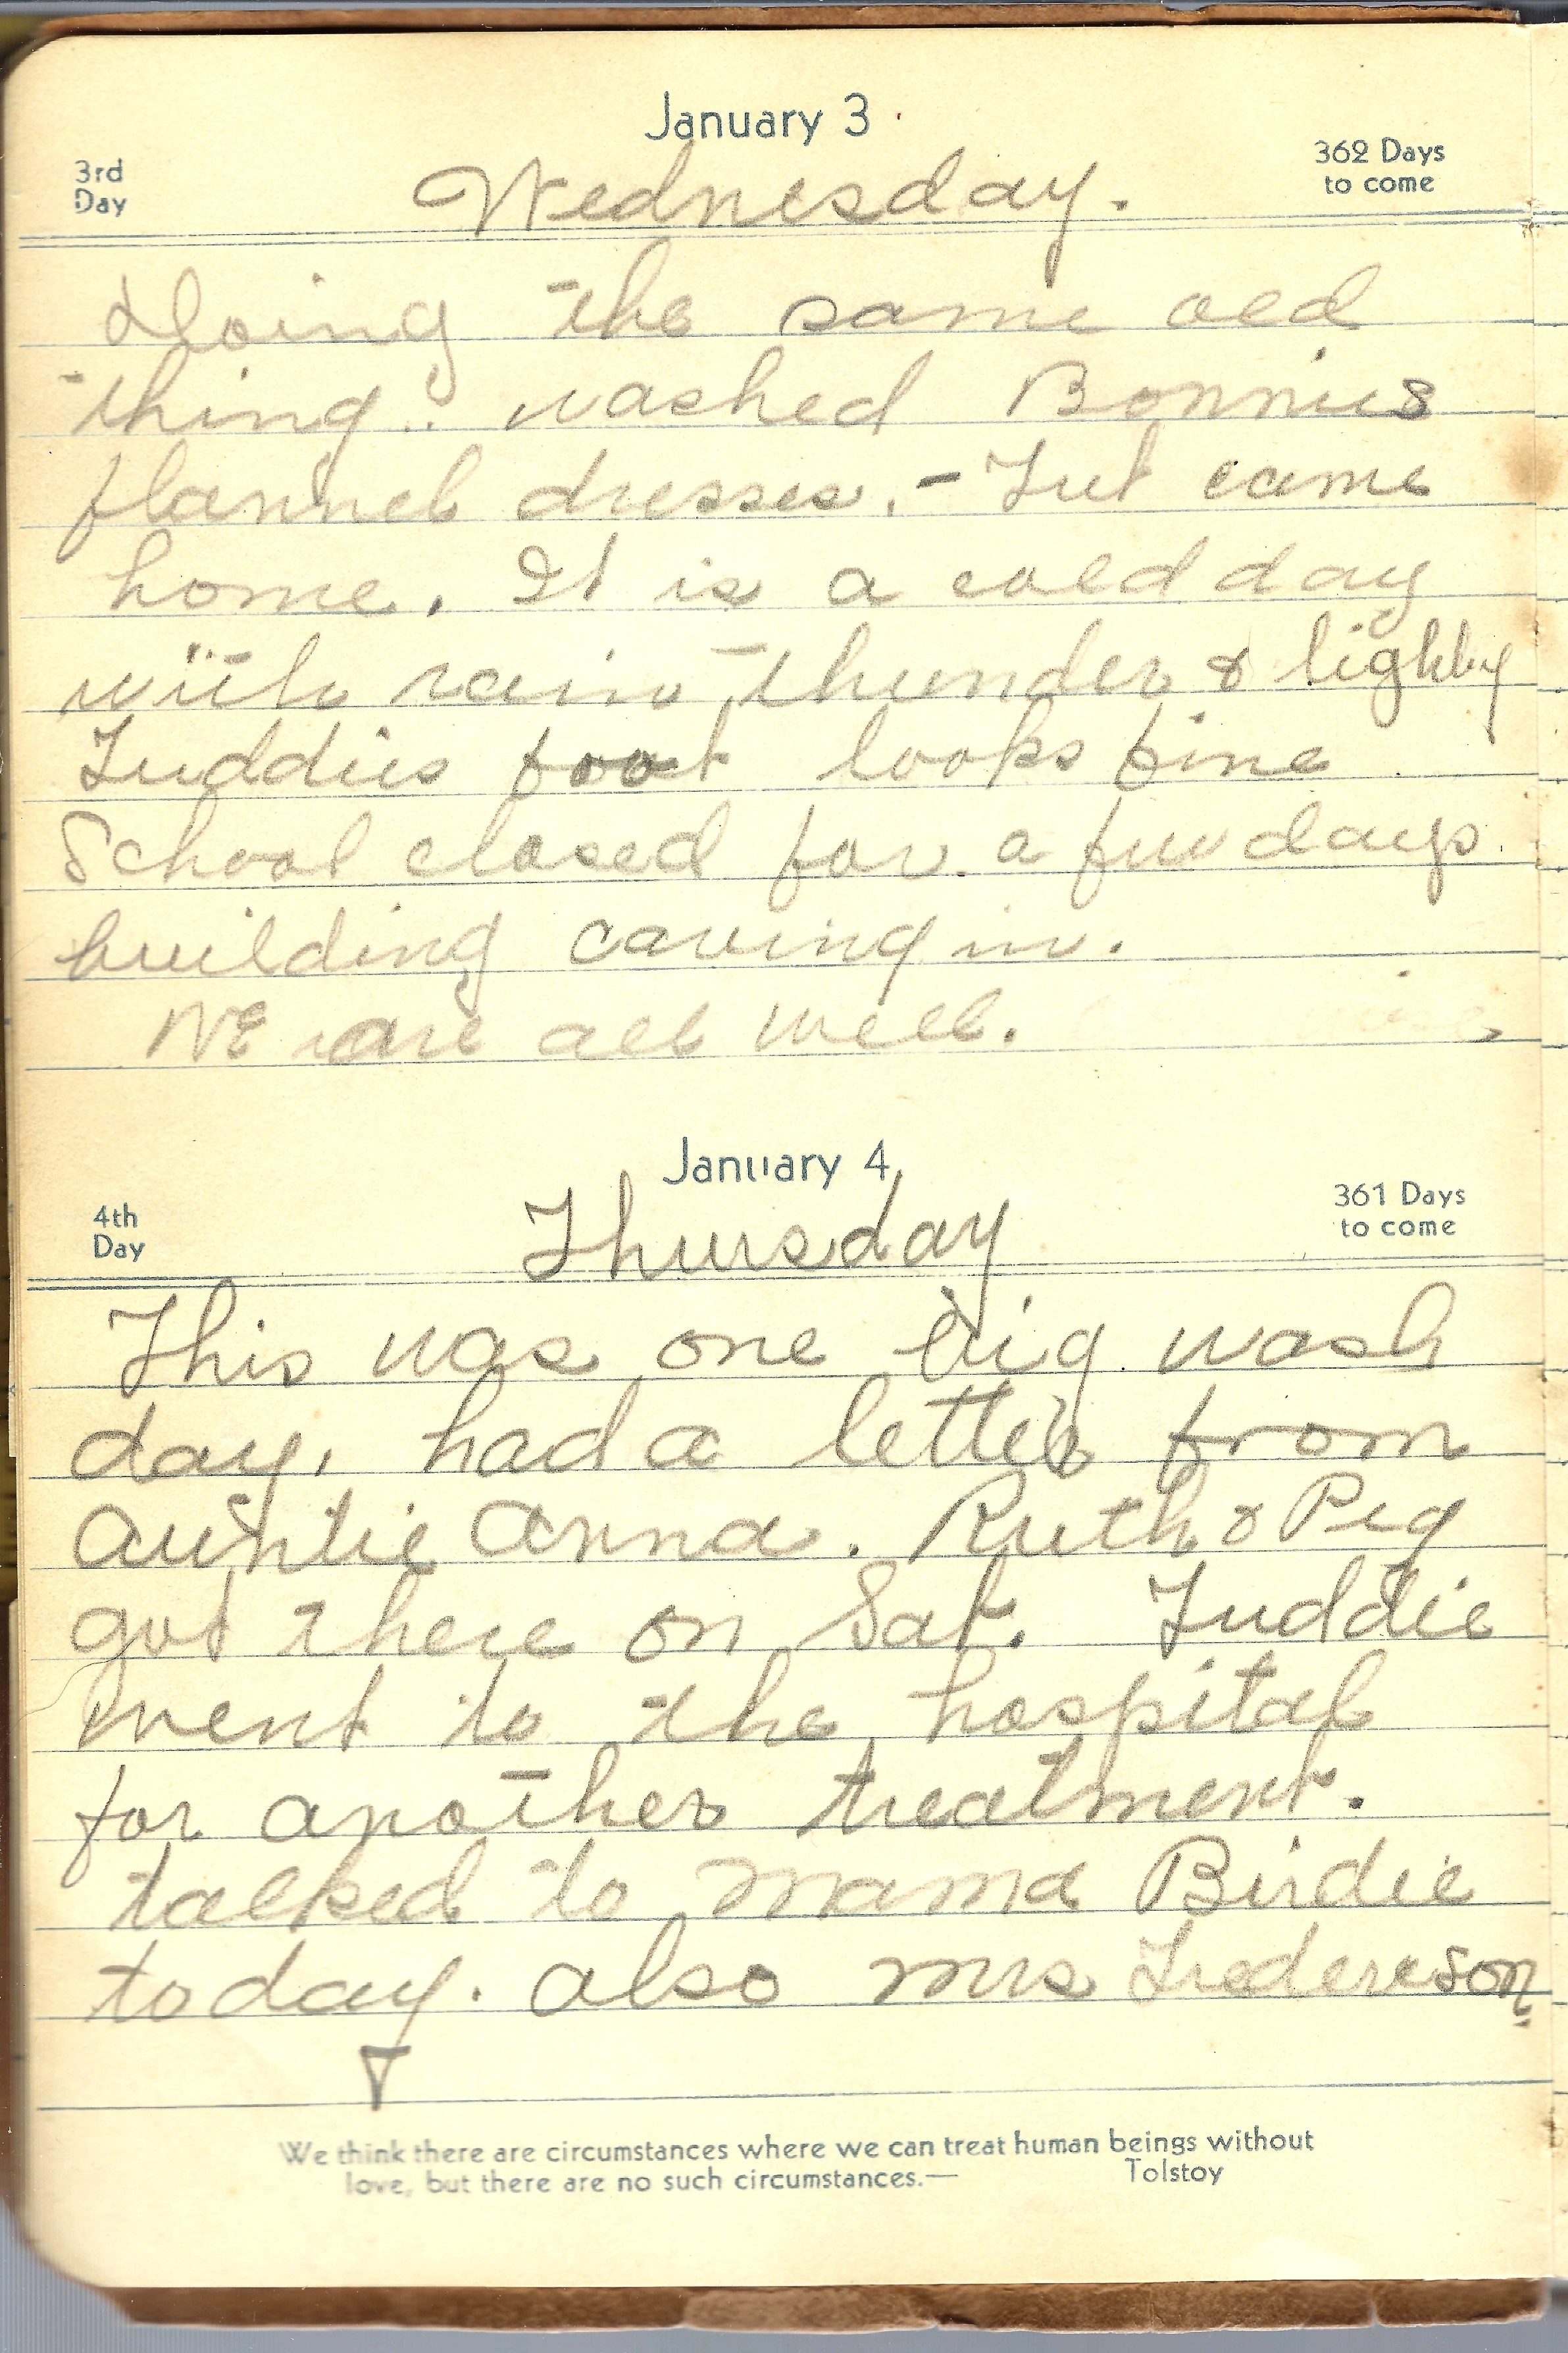 January 3
3rd
Day
362 Days
to come
Wednesday.
Doing the same old
thing.. washed Bonnies
flannel dresses. - Tut came
home. It is a cold day
with rain thunder &
Tuddies foot looks fine
School closed for a few days
building caving in.
WE are all well.
January 4
4th
Day
361 Days
to come
Thursday
This was one big wash
day, had a letter from
Auntie Anna. Ruth & Peg
got there on Sat. Tuddie
went to the hospital
for another treatment.
talked to Mama Birdie
today. also Mrs
We think there are circumstances where we can treat human beings without
love, but there are no such circumstances.— Tolstoy